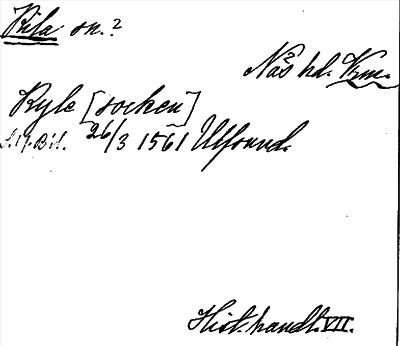 Kila sn.?
Nås hd. Vrm.
Kyle [socken]
26/3 1561 Ulfsund.
Hist. handl. VII.